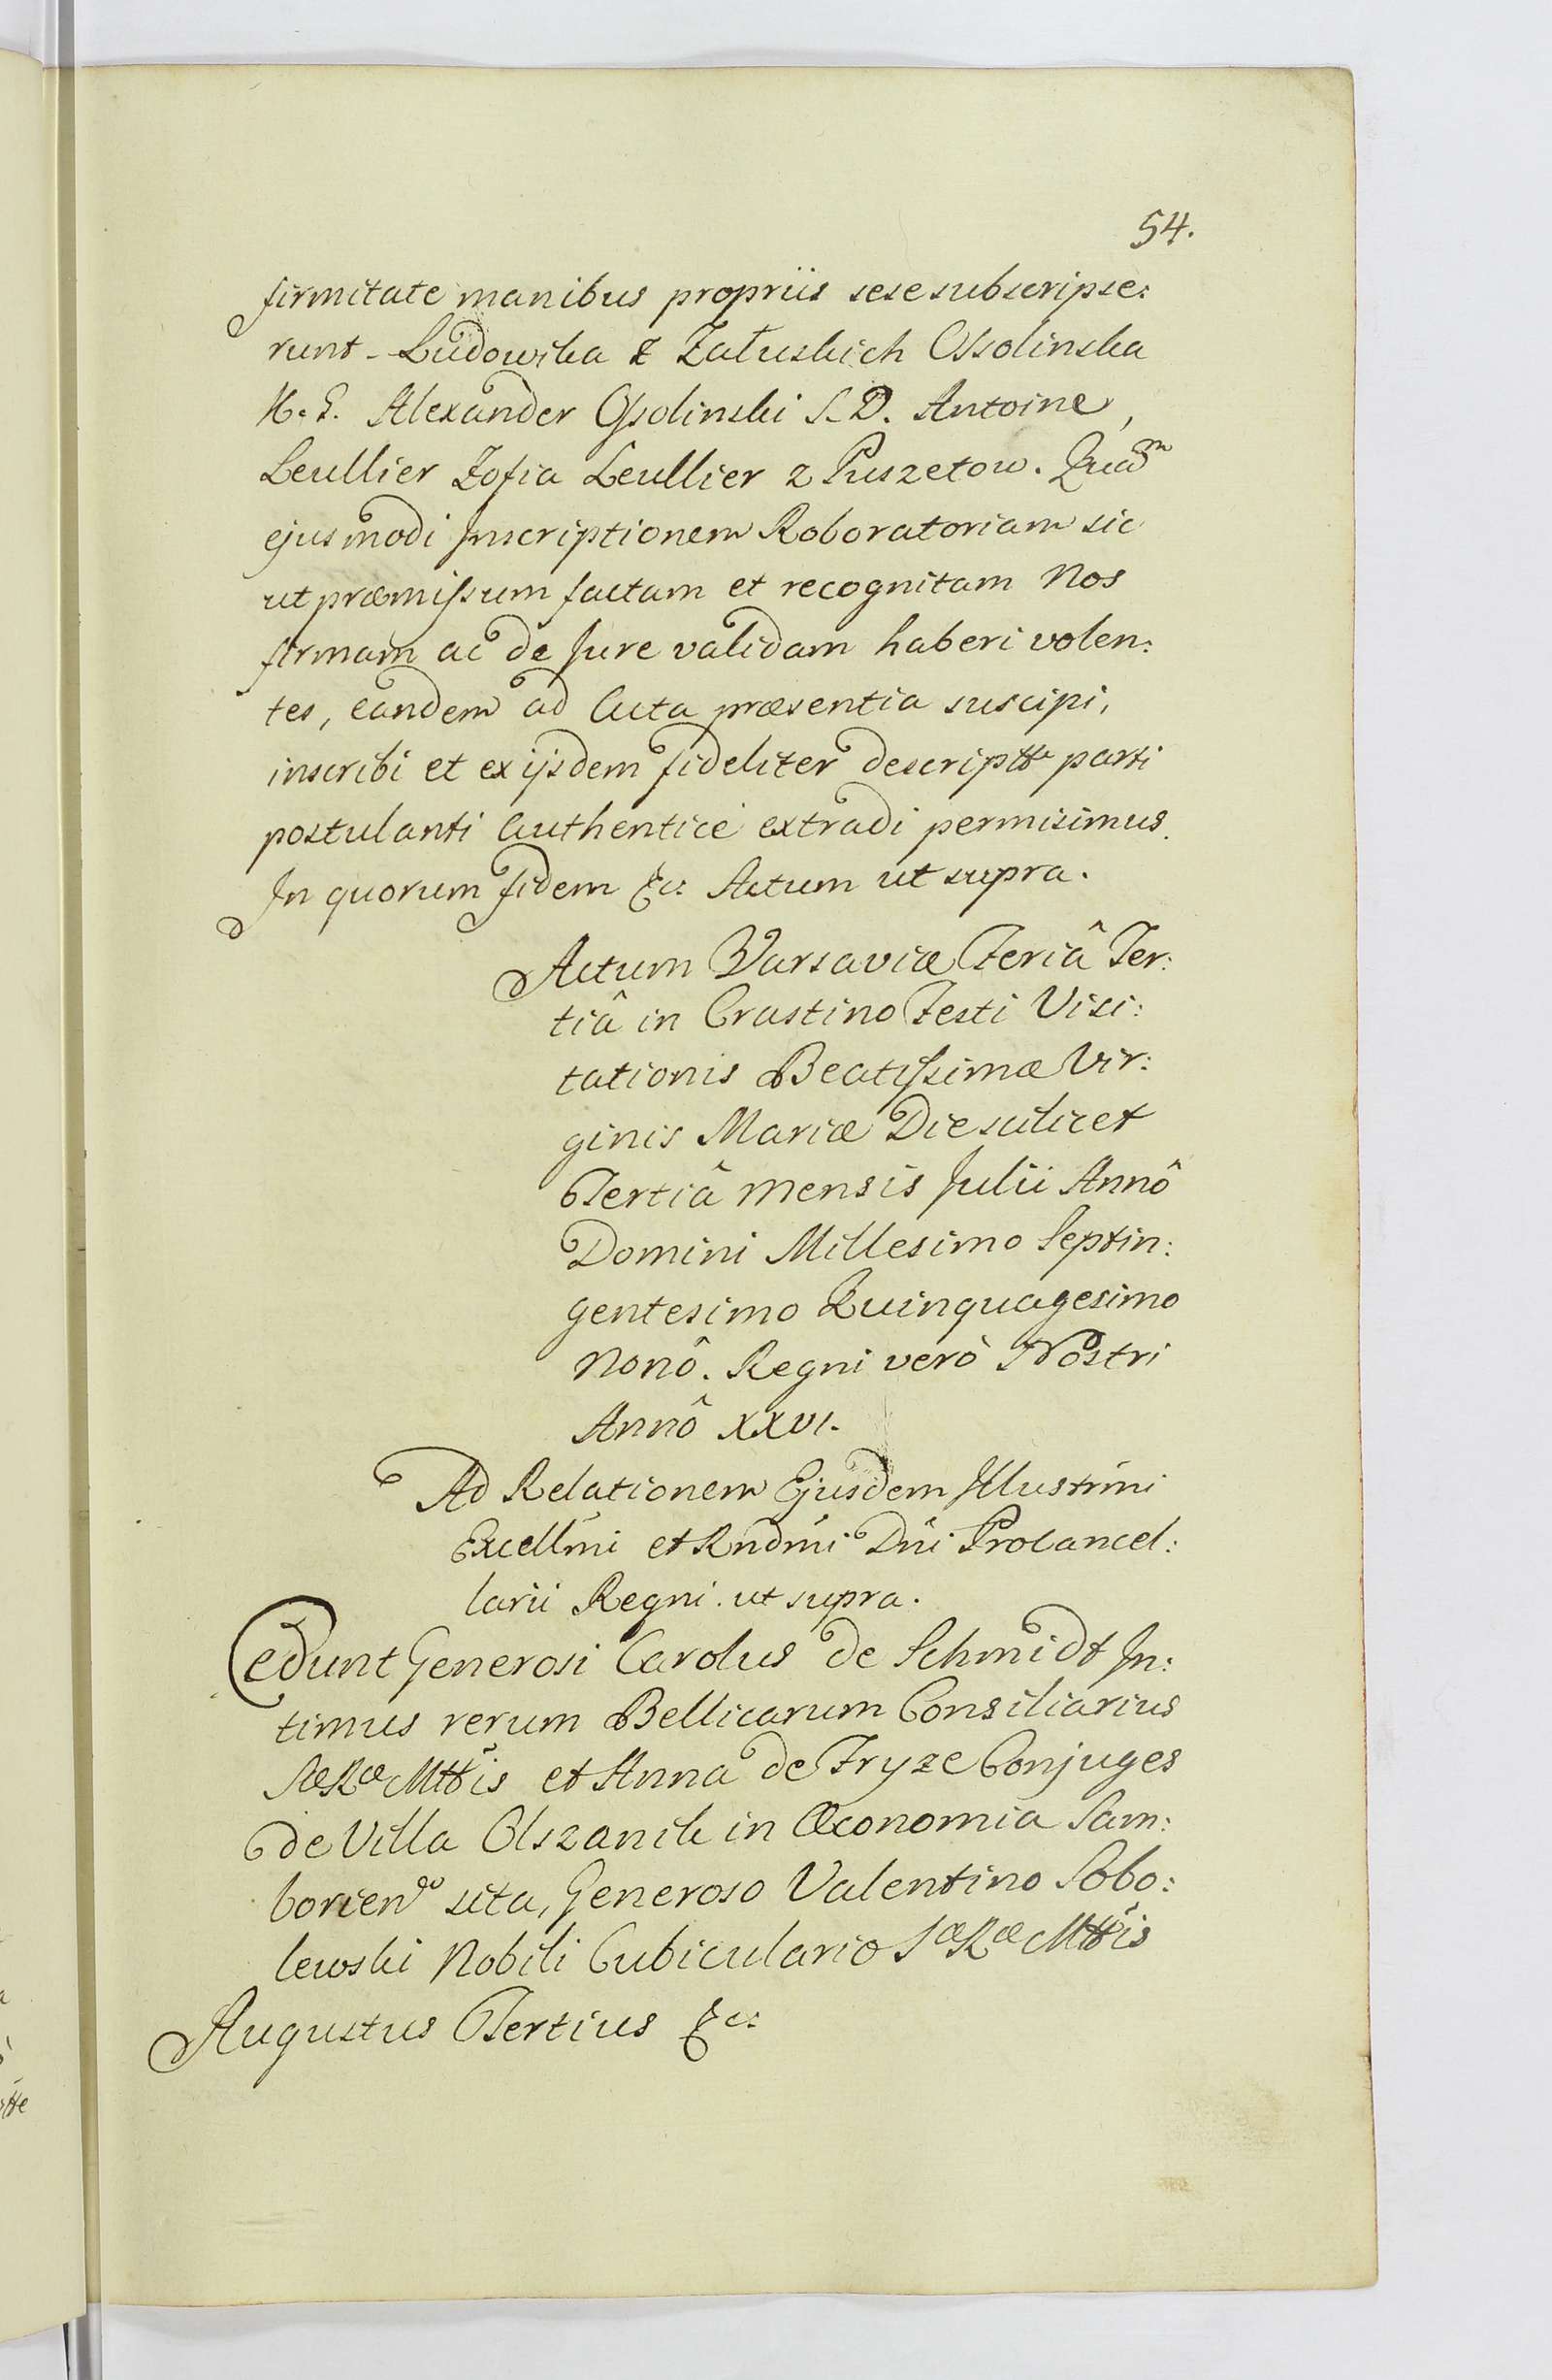 54.
firmitate manibus propriis sese subscripse:
runt - Ludowika z Załuskich Ossolinska
Alexander Ossolinski S. D. Antoine,
Leullier Zofia Leullier z Puszetow. Quãm
ejusmodi Inscriptionem Roboratoriam sic
ut præmissum factam et recognitam Nos
firmam ac de Jure validam haberi volen:
tes, eandem ad Acta præsentia suscipi,
inscribi et ex ijsdem fideliter descriptte parti
postulanti Authenticè extradi permisimus.
In quorum fidem &c: Actum ut supra.
Actum Varsaviæ Feriâ Ter:
tiâ in Crastino Festi Visi:
tationis Beatissimæ Vir:
ginis Mariæ Die scilicet
Tertiâ mensis Julii Annô
Domini Millesimo Septin:
gentesimo Quinquagesimo
Nonô. Regni verò Nostri
Annô XXVI.
Ad Relationem Ejusdem Illustrmi
Excellmi et Rndmi Dni Procancel:
larii Regni ut supra.
Cedunt Generosi Carolus de Schmidt In:
timus rerum Bellicarum Consiliarius
SæRæMttis et Anna de Fryze Conjuges
de Villa Olszanik in Œconomia Sam:
borien sita, Generoso Valentino Sobo:
lewski Nobili Cubiculario SæRæMttis
Augustus Tertius &c: